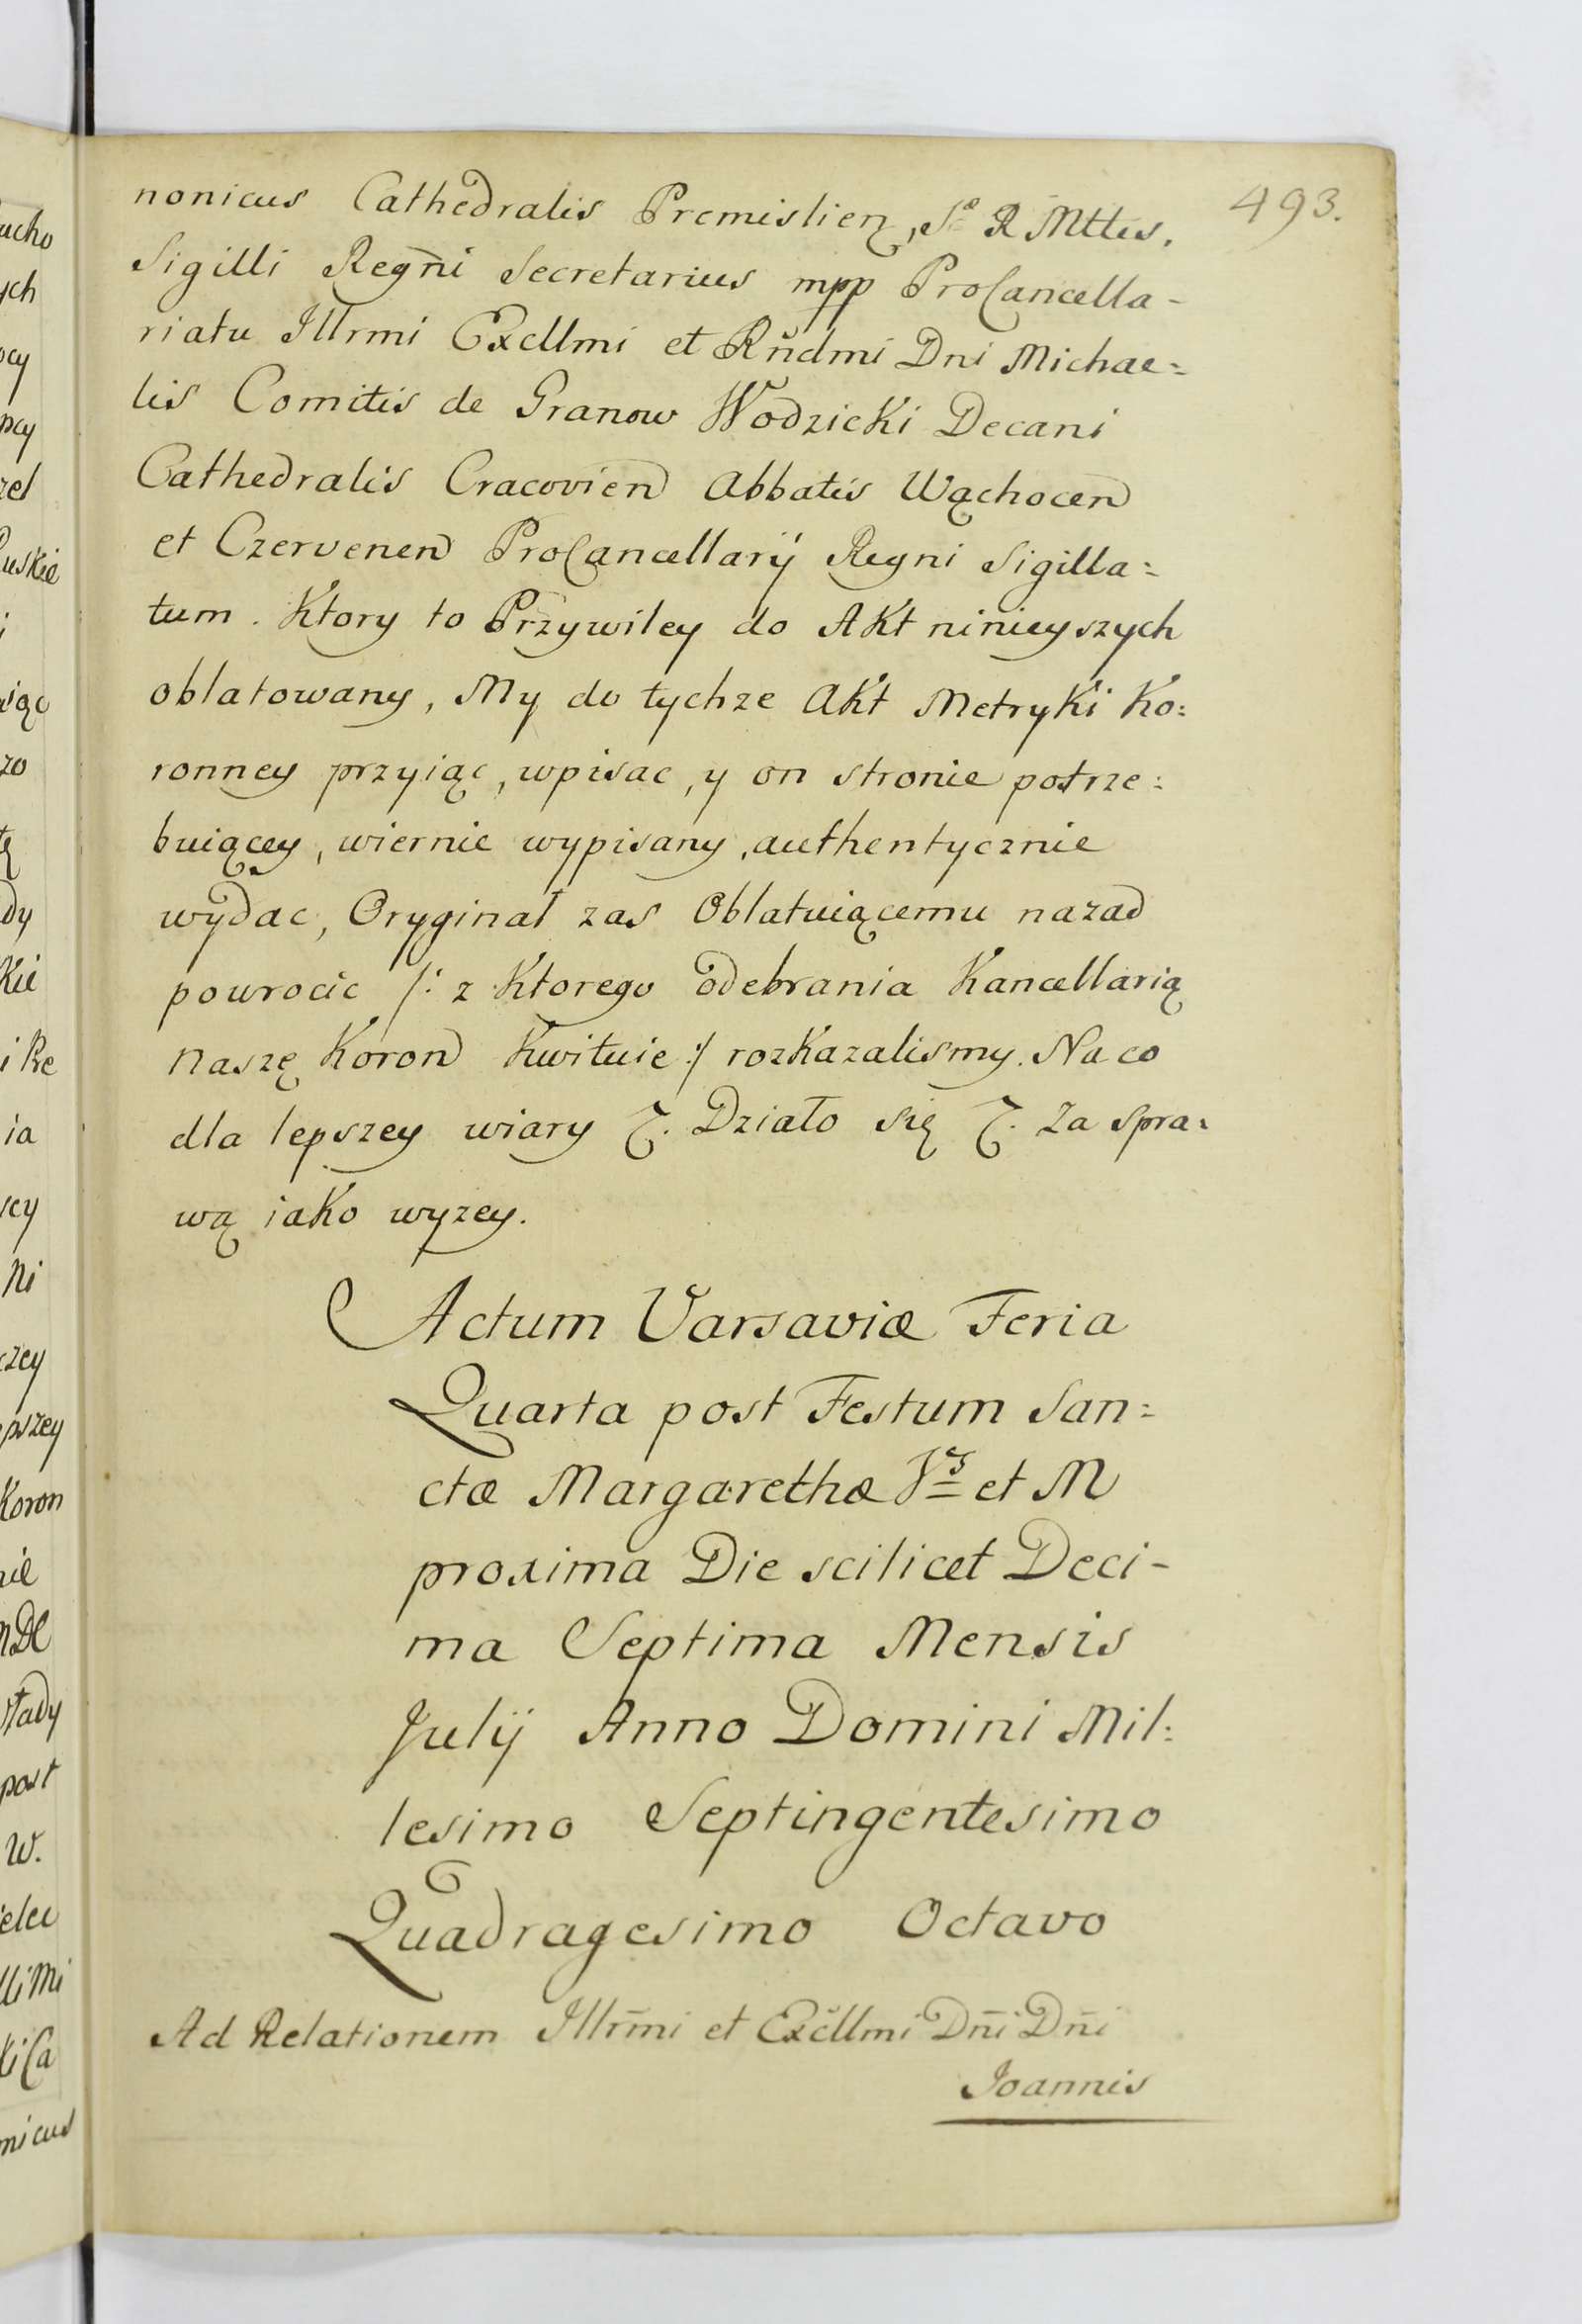 493.
nonicus Cathedralis Premislien, Sæ R Mttis.
Sigilli Regñi Secretarius mpp ProCancella-
riatu Illrmi Excllmi et Rñdmi Dni Michae=
lis Comitis de Granow Wodzicki Decani
Cathedralis Cracovien Abbatis Wąchocen
et Czervenen ProCancellarÿ Regni Sigilla=
tum. Ktory to Przywiley do Akt ninieyszych
oblatowany, My do tychze Akt Metryki Ko=
ronney przyiąc, wpisac, y on stronie potrze=
buiącey, wiernie wypisany, authentycznie
wydac, Oryginał zas Oblatuiącemu nazad
powrocic /: z Ktorego odebrania Kancellarią
naszę Koron Kwituie :/ rozkazalismy. Na co
dla lepszey wiary &. Działo się &. Za spra=
wą iako wyzey.
Actum Varsaviæ Feria
Quarta post Festum San=
ctæ Margarethæ Vs et M
proxima Die scilicet Deci-
ma Septima Mensis
Julÿ Anno Domini Mil=
lesimo Septingentesimo
Quadragesimo Octavo
Ad Relationem Illrm̃i et Excllmi Dñi Dñi
Joannis